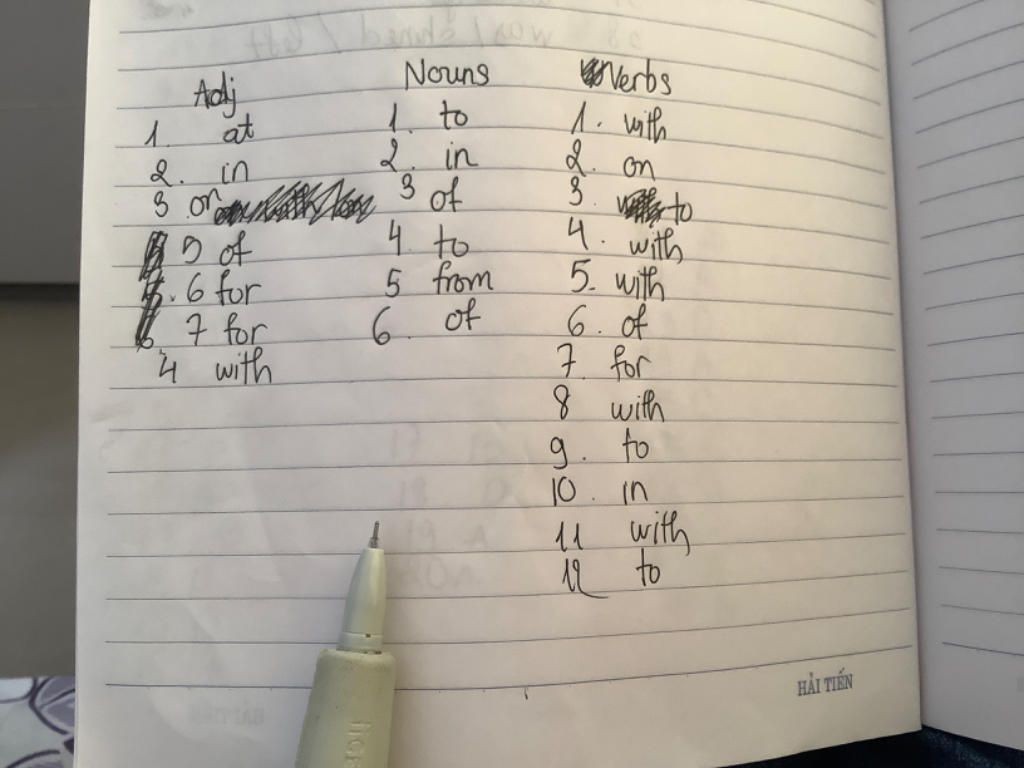 Adj Nouns Verbs
1. at 1. to 1. with
2. in 2. in 2. on
3 on 3 of 3. to
5 of 4. to 4. with
6 for 5 from 5. with
7 for 6. of 6. of
4 with 7. for
8 with
9. to
10. in
11 with
12 to
HẢI TIẾN